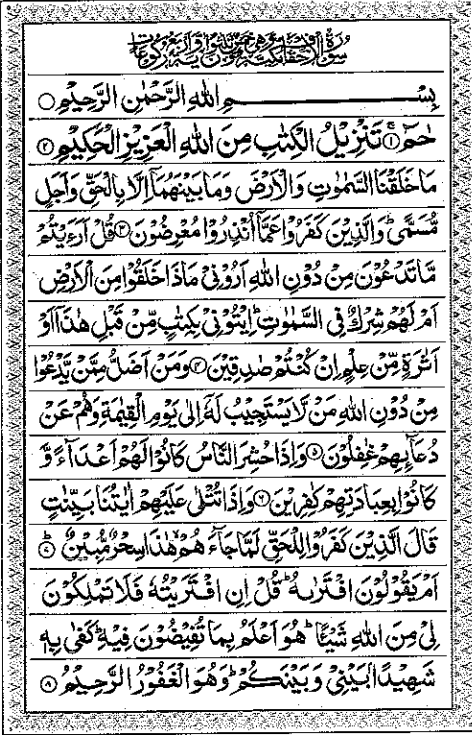 بِسْمِ اللهِ الرَّحْمٰنِ الرَّحِیْمِ ○
حٰمٓ ۚ ﴿۱﴾ تَنْزِیْلُ الْکِتٰبِ مِنَ اللهِ الْعَزِیْزِ الْحَکِیْمِ ﴿۲﴾
مَا خَلَقْنَا السَّمٰوٰتِ وَالْاَرْضَ وَمَا بَیْنَهُمَاۤ اِلَّا بِالْحَقِّ وَاَجَلٍ
مُّسَمًّی ؕ وَالَّذِیْنَ کَفَرُوْا عَمَّاۤ اُنْذِرُوْا مُعْرِضُوْنَ ﴿۳﴾ قُلْ اَرَءَیْتُمْ
مَّا تَدْعُوْنَ مِنْ دُوْنِ اللهِ اَرُوْنِیْ مَاذَا خَلَقُوْا مِنَ الْاَرْضِ
اَمْ لَهُمْ شِرْکٌ فِی السَّمٰوٰتِ ؕ اِیْتُوْنِیْ بِکِتٰبٍ مِّنْ قَبْلِ هٰذَاۤ اَوْ
اَثٰرَةٍ مِّنْ عِلْمٍ اِنْ کُنْتُمْ صٰدِقِیْنَ ﴿۴﴾ وَمَنْ اَضَلُّ مِمَّنْ یَّدْعُوْا
مِنْ دُوْنِ اللهِ مَنْ لَّا یَسْتَجِیْبُ لَهٗۤ اِلٰی یَوْمِ الْقِیٰمَةِ وَهُمْ عَنْ
دُعَآئِهِمْ غٰفِلُوْنَ ﴿۵﴾ وَاِذَا حُشِرَ النَّاسُ کَانُوْا لَهُمْ اَعْدَآءً وَّ
کَانُوْا بِعِبَادَتِهِمْ کٰفِرِیْنَ ﴿۶﴾ وَاِذَا تُتْلٰی عَلَیْهِمْ اٰیٰتُنَا بَیِّنٰتٍ
قَالَ الَّذِیْنَ کَفَرُوْا لِلْحَقِّ لَمَّا جَآءَهُمْ ۙ هٰذَا سِحْرٌ مُّبِیْنٌ ﴿۷﴾ ؕ
اَمْ یَقُوْلُوْنَ افْتَرٰىهُ ؕ قُلْ اِنِ افْتَرَیْتُهٗ فَلَا تَمْلِکُوْنَ
لِیْ مِنَ اللهِ شَیْئًا ؕ هُوَ اَعْلَمُ بِمَا تُفِیْضُوْنَ فِیْهِ ؕ کَفٰی بِهٖ
شَهِیْدًۢا بَیْنِیْ وَبَیْنَکُمْ ؕ وَهُوَ الْغَفُوْرُ الرَّحِیْمُ ﴿۸﴾